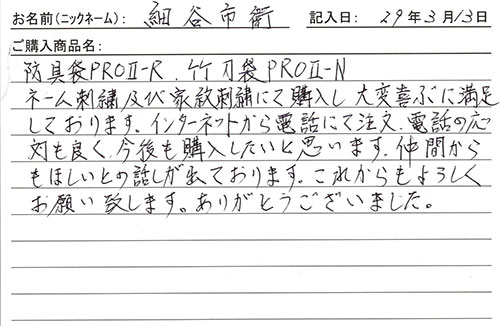 お名前(ニックネーム): 細谷市衛 記入日: 29年3月13日
ご購入商品名:
防具袋PROⅡ-R. 竹刀袋PROⅡ-N
ネーム刺繍及び家紋刺繍にて購入し大変喜ぶに満足
しております。インターネットから電話にて注文、電話の応
対も良く、今後も購入したいと思います。仲間から
もほしいとの話しが出ております。これからもよろしく
お願い致します。ありがとうございました。